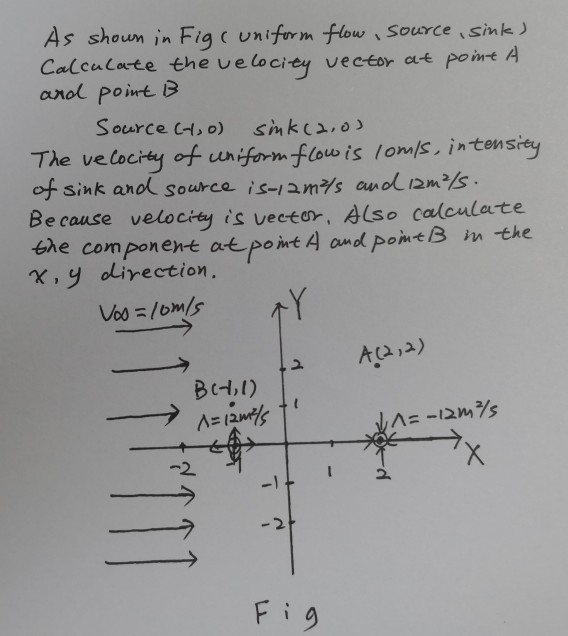 As shown in Fig ( uniform flow、source、sink )
Calculate the velocity vector at point A
and point B
Source (-1,0) sink (2,0)
The velocity of uniform flow is 10m/s, intensity
of sink and source is -12m²/s and 12m²/s.
Because velocity is vector, Also calculate
the component at point A and point B in the
x, y direction.
V∞ = 10m/s
Y
A(2,2)
2
B(-1,1)
1
Λ=12m²/s
Λ= -12m²/s
X
-2
-1
1
2
-1
-2
Fig